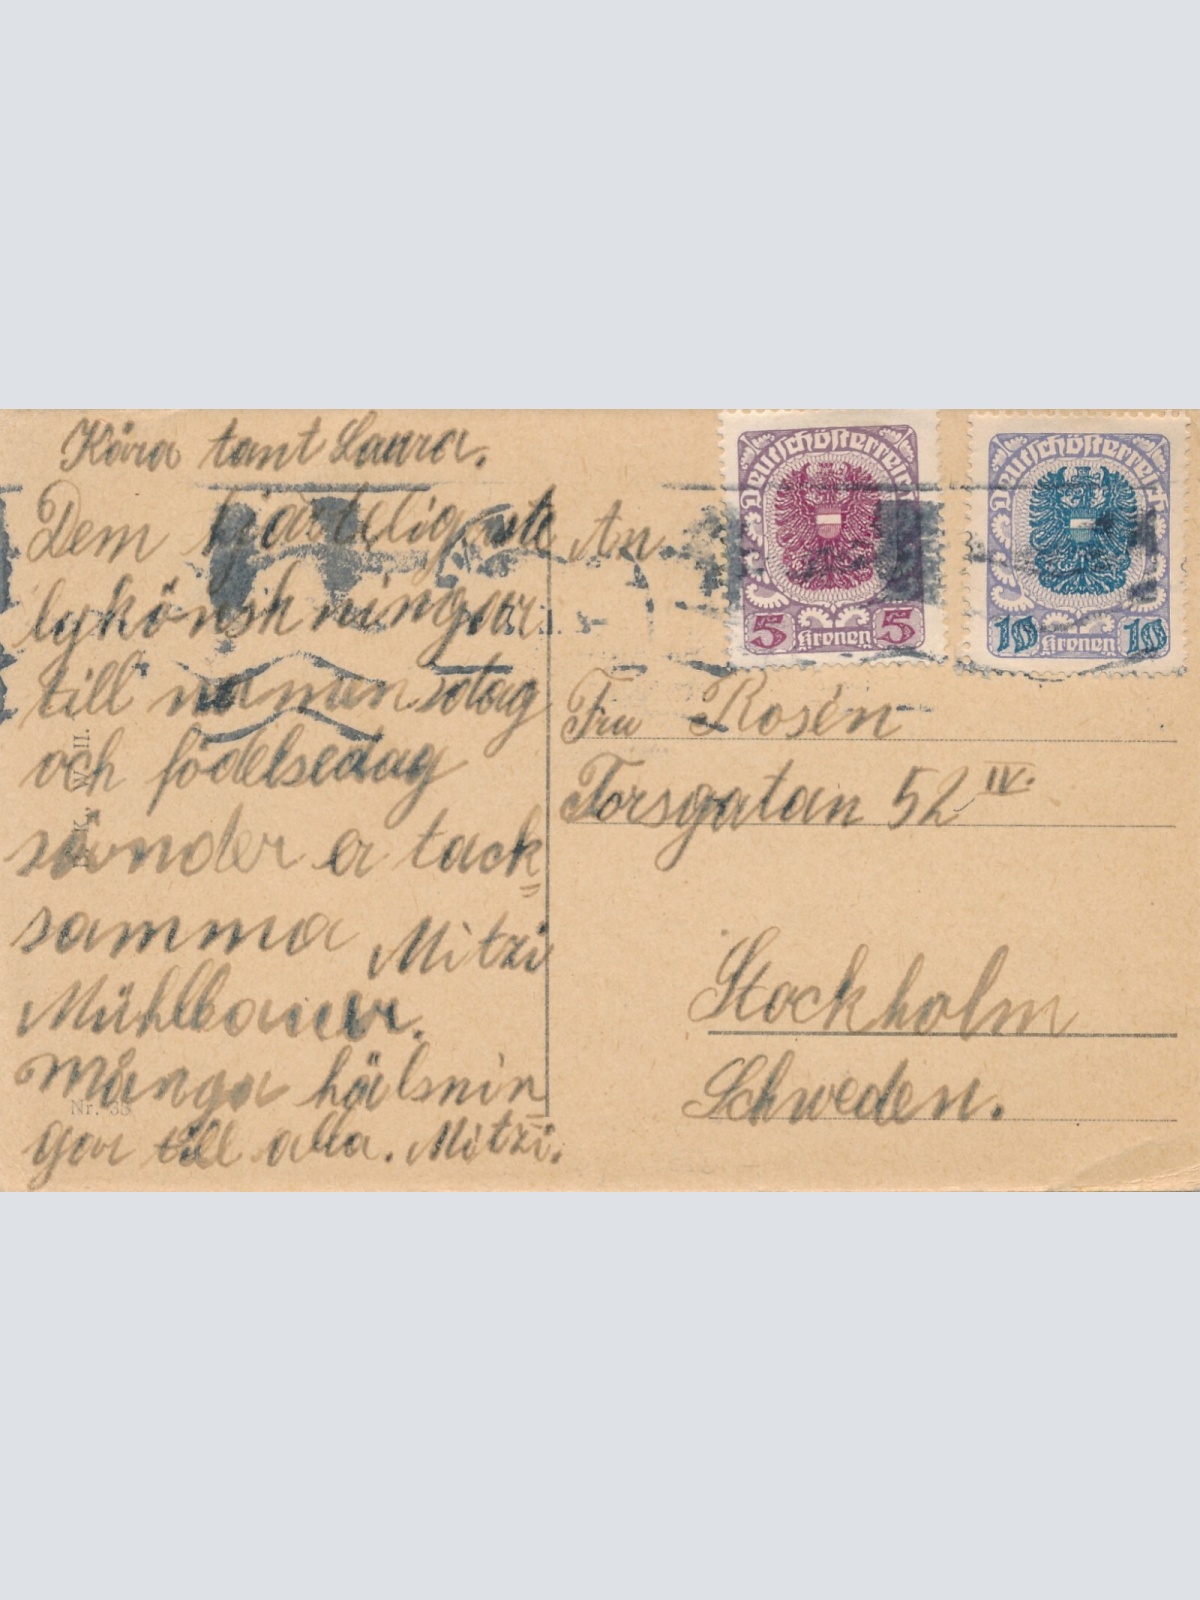 Kära tant Laura.
Dem hjärtligaste
lykönskningar
till namensdag
och födelsedag
sänder er tack=
samma Mitzi
Mühlbauer.
Många hälsnin
gar till alla. Mitzi.
Nr. 38
An
Fru Rosén
Torsgatan 52 IV.
Stockholm
Schweden.
Deutschösterreich
5 Kronen 5
Deutschösterreich
10 Kronen 10